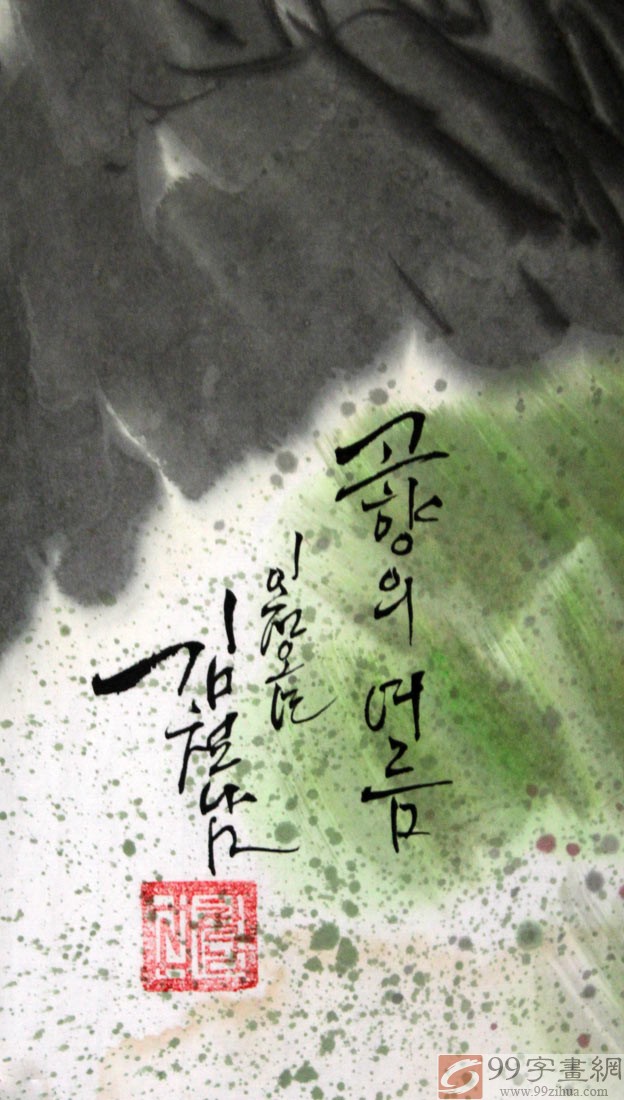 고향의 여름
이천오년
김철남
99字畫網
www.99zihua.com